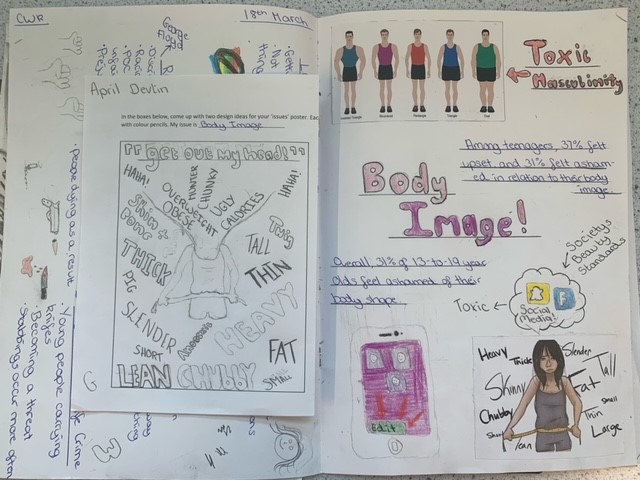 CWR
18th March
George
Floyd
April Devlin
In the boxes below, come up with two design ideas for your 'issues' poster. Eac
with colour pencils. My issue is Body Image
"get out my head!"
HAHA!
HUNTER
CHUNKY
HAHA!
OVERWEIGHT
OBESE
UGLY
CALORIES
SKIN +
BONE
THICK
PIG
SLENDER
SHORT
TALL
THIN
HEAVY
FAT
LEAN
CHUBBY
SMALL
people dying as a result
Crime
Young people carrying
knifes
Becoming a threat
Stabbings occur more often
Inverted Triangle
Rectangle
Triangle
Oval
Toxic
Masculinity
Among teenagers, 37% felt
upset and 31% felt asham-
ed in relation to their body
image.
Body
Image!
Overall, 31% of 13-to-19 year
olds feel ashamed of their
body shape.
Societys
Beauty
Standards
Toxic
Social
Media!
Edit
Heavy
Thick
Slender
Tall
Skinny
Fat
Chubby
Small
Thin
Short
Lean
Large